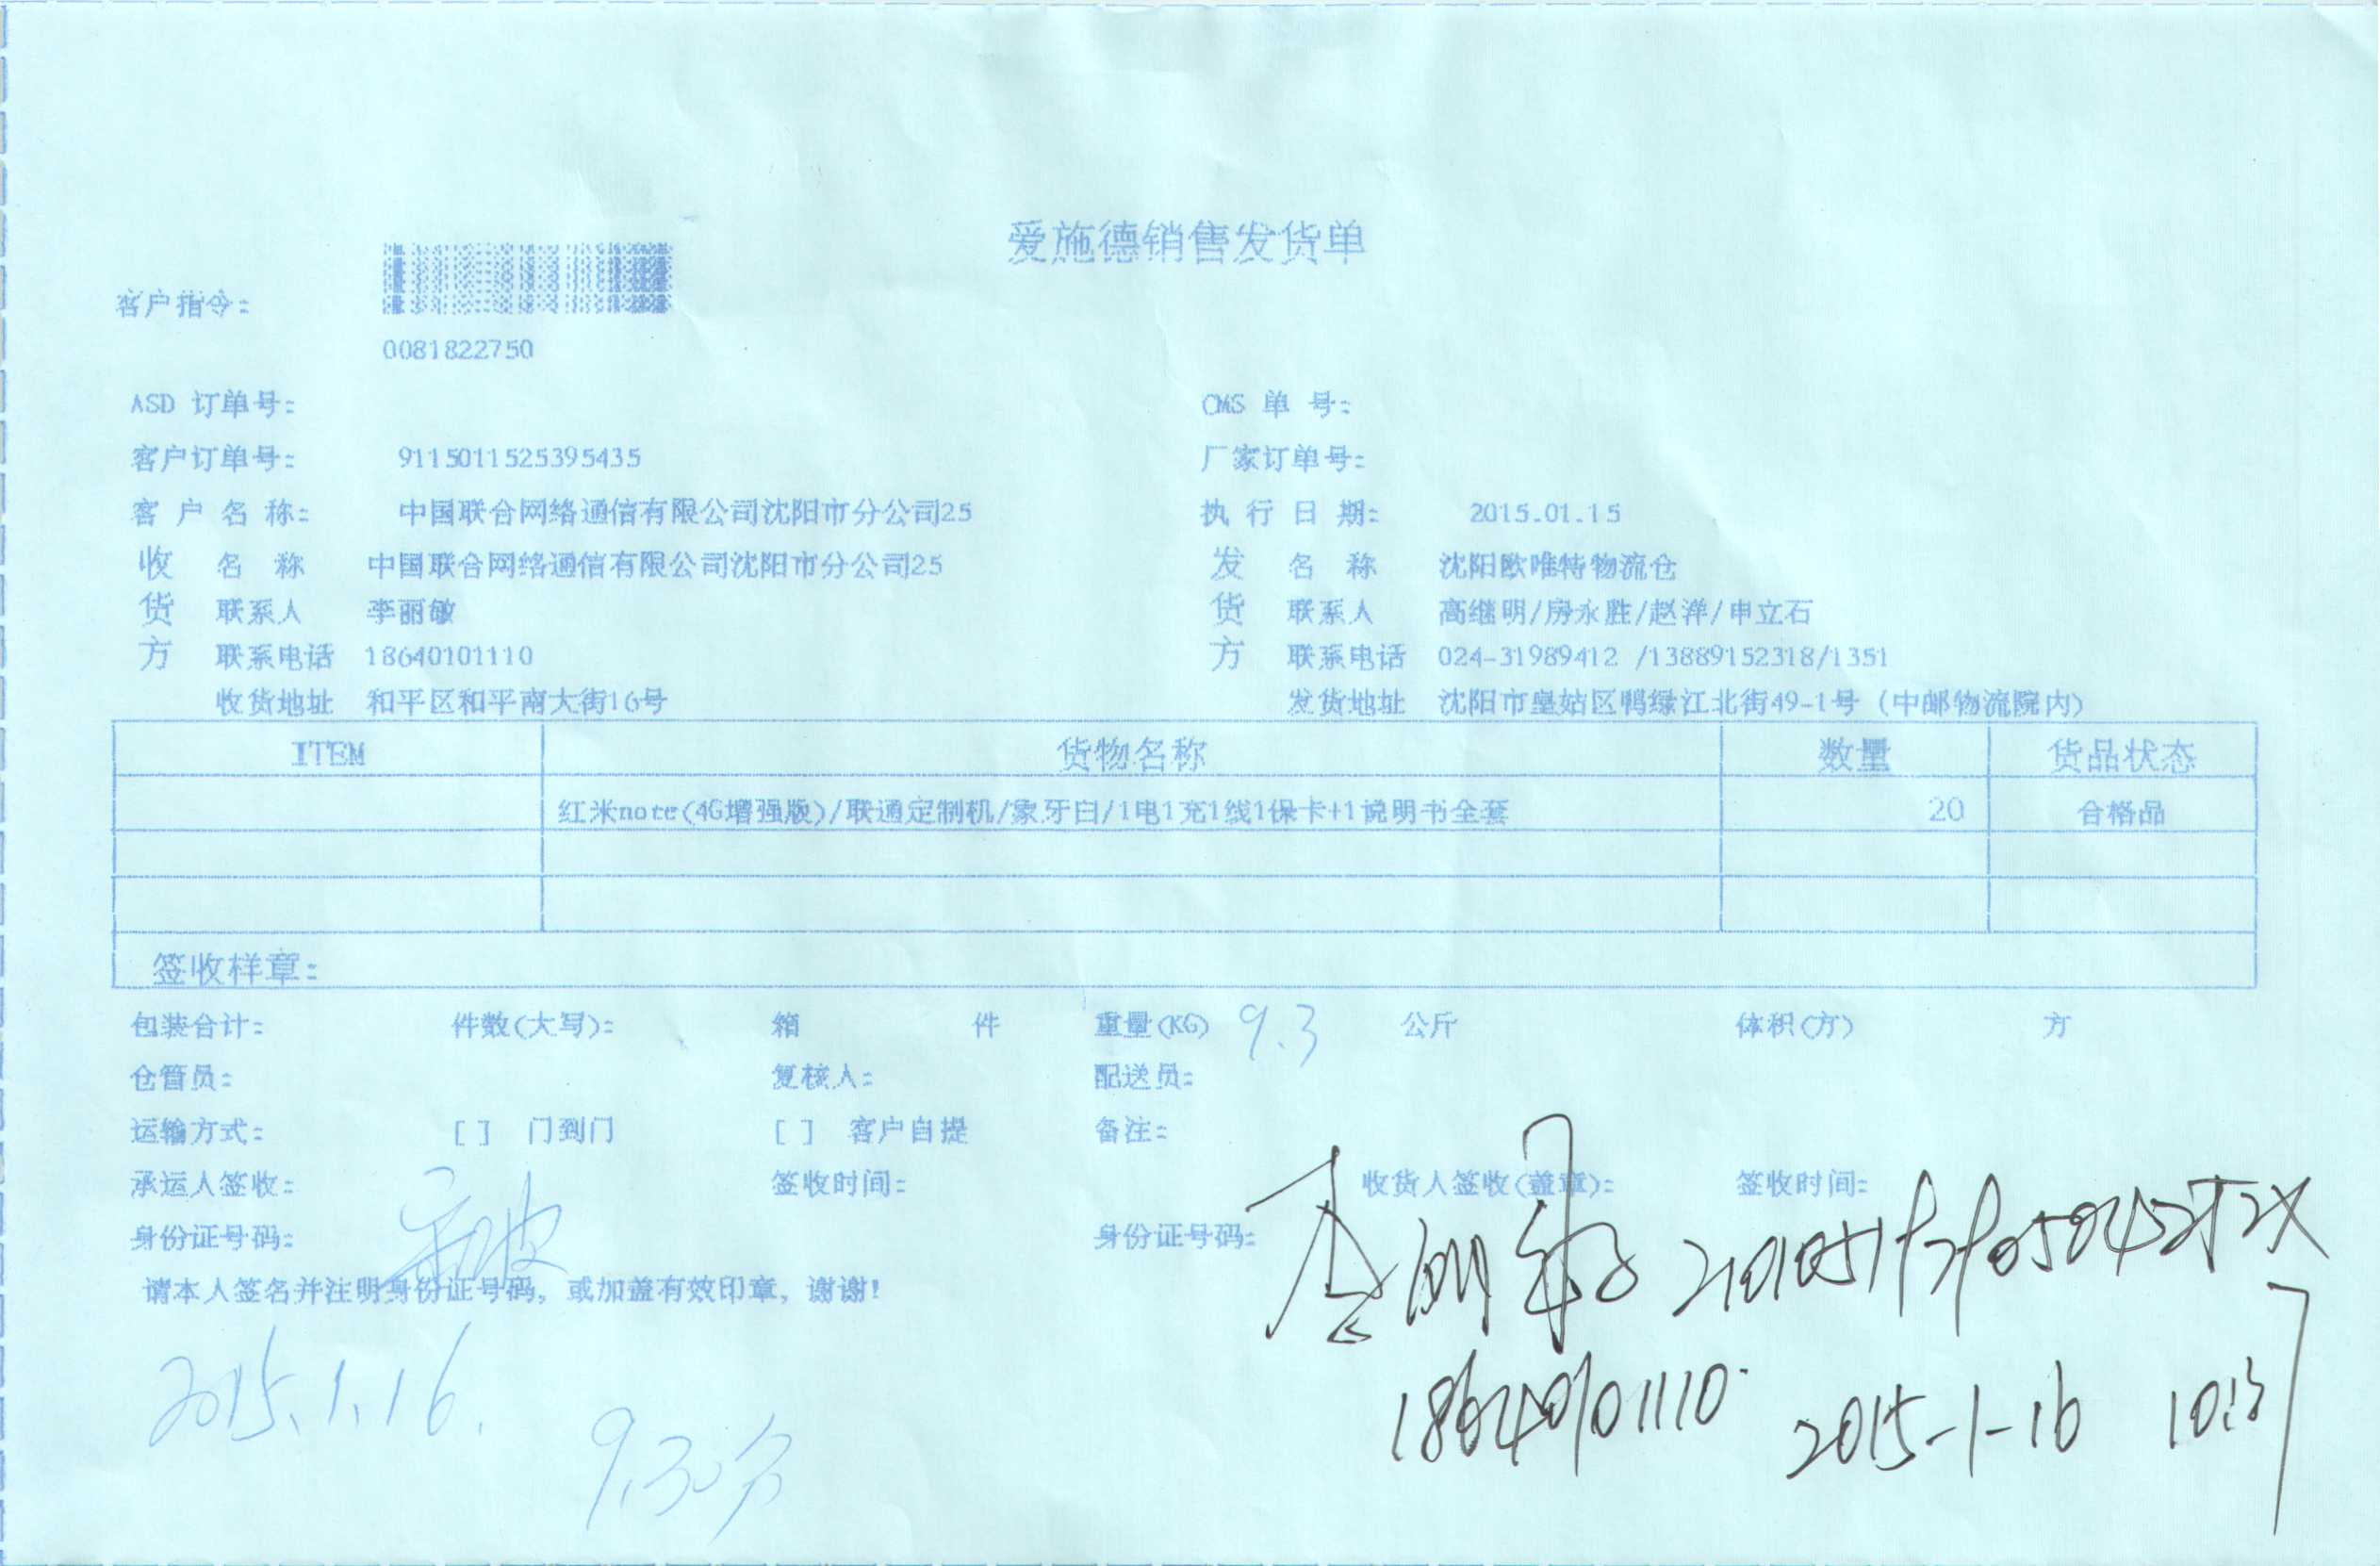 爱施德销售发货单
客户指令:
0081822750
ASD 订单号: CMS 单 号:
客户订单号: 9115011525395435 厂家订单号:
客 户 名 称: 中国联合网络通信有限公司沈阳市分公司25 执 行 日 期: 2015.01.15
收 名 称 中国联合网络通信有限公司沈阳市分公司25 发 名 称 沈阳欧唯特物流仓
货 联系人 李丽敏 货 联系人 高继明/房永胜/赵洋/申立石
方 联系电话 18640101110 方 联系电话 024-31989412 /13889152318/1351
收货地址 和平区和平南大街16号 发货地址 沈阳市皇姑区鸭绿江北街49-1号 (中邮物流院内)
ITEM 货物名称 数量 货品状态
红米note(4G增强版)/联通定制机/象牙白/1电1充1线1保卡+1说明书全套 20 合格品
签收样章:
包装合计: 件数(大写): 箱 件 重量(KG) 9.3 公斤 体积(方) 方
仓管员: 复核人: 配送员:
运输方式: [ ] 门到门 [ ] 客户自提 备注:
承运人签收: 签收时间: 收货人签收(盖章): 签收时间:
身份证号码: 身份证号码:
请本人签名并注明身份证号码, 或加盖有效印章, 谢谢!
18640101110
2015.1.16. 2015-1-16